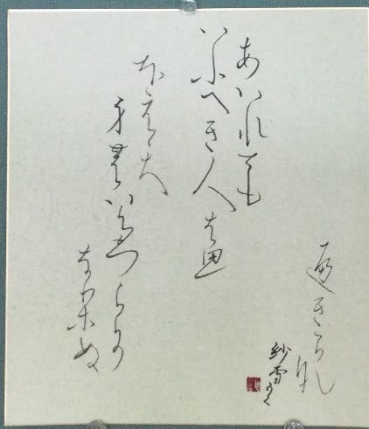 あはれとも
いふへき人は思
ほえて
身のいたつらに
なりぬ
へきか
な
紗雪かく